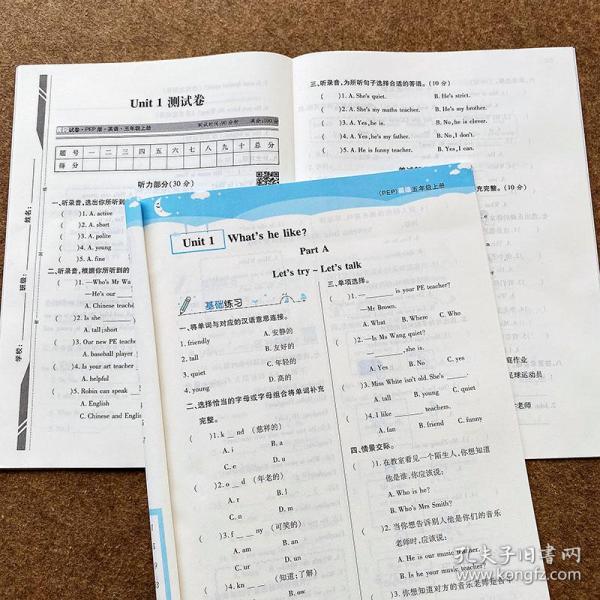 Unit 1 测试卷
试卷·PEP版·英语·五年级上册
题号 一 二 三 四 五 六 七 八 九 十 总分
得分
听力部分(30分)
一、听录音,选出你所听到
( )1. A. active
( )2. A. short
( )3. A. polite
( )4. A. young
( )5. A. fine
二、听录音,根据你所听到的
( )1. —Who's Mr Wa
—He's our
A. Chinese teache
( )2. Is she
A. tall;short
( )3. Our new PE teache
A. baseball player
( )4. Is your art teacher
A. helpful
( )5. Robin can speak
A. English
C. Chinese and Englis
学校:
班级:
姓名:
三、听录音,为所听句子选择合适的答语。(10分)
( )1. A. She's quiet. B. He's strict.
( )2. A. She's my maths teacher. B. He's my brother.
( )3. A. Yes,he is. B. No,he is clever.
( )4. A. Yes,he's my father. B. No,I don't.
( )5. A. He is funny teacher. B. Yes,I can.
充完整。(10分)
庭作业
足球运动员
老师
(PEP)英语五年级上册
Unit 1 What's he like?
Part A
Let's try ~ Let's talk
基础练习
一、将单词与对应的汉语意思连接。
1. friendly A. 安静的
2. tall B. 友好的
3. quiet C. 年轻的
4. young D. 高的
二、选择恰当的字母或字母组合将单词补充
完整。
( )1. k__nd (慈祥的)
A. i B. a
C. e D. u
( )2. o__d (年老的)
A. r B. l
C. n D. m
( )3. f__ny (可笑的)
A. am B. an
C. ur D. un
( )4. kn__ (知道;了解)
A. ou B. ow
三、单项选择。
( )1. —______ is your PE teacher?
—Mr Brown.
A. What B. Where C. Who
( )2. —Is Ms Wang quiet?
—______,she is.
A. Yes B. No C. yes
( )3. Miss White isn't old. She's ______.
A. tall B. young C. quiet
( )4. I like ______ teachers.
A. fun B. friend C. funny
四、情景交际。
( )1. 在教室看见一个陌生人,你想知道
他是谁,你应该说:
A. Who is he?
B. Who's Mrs Smith?
( )2. 当你想告诉别人他是你们的音乐
老师时,应该说:
A. He is our music teacher.
B. Is he your music teacher?
( )3. 你想知道对方的音乐老师是否年
孔夫子旧书网
www.kongfz.com